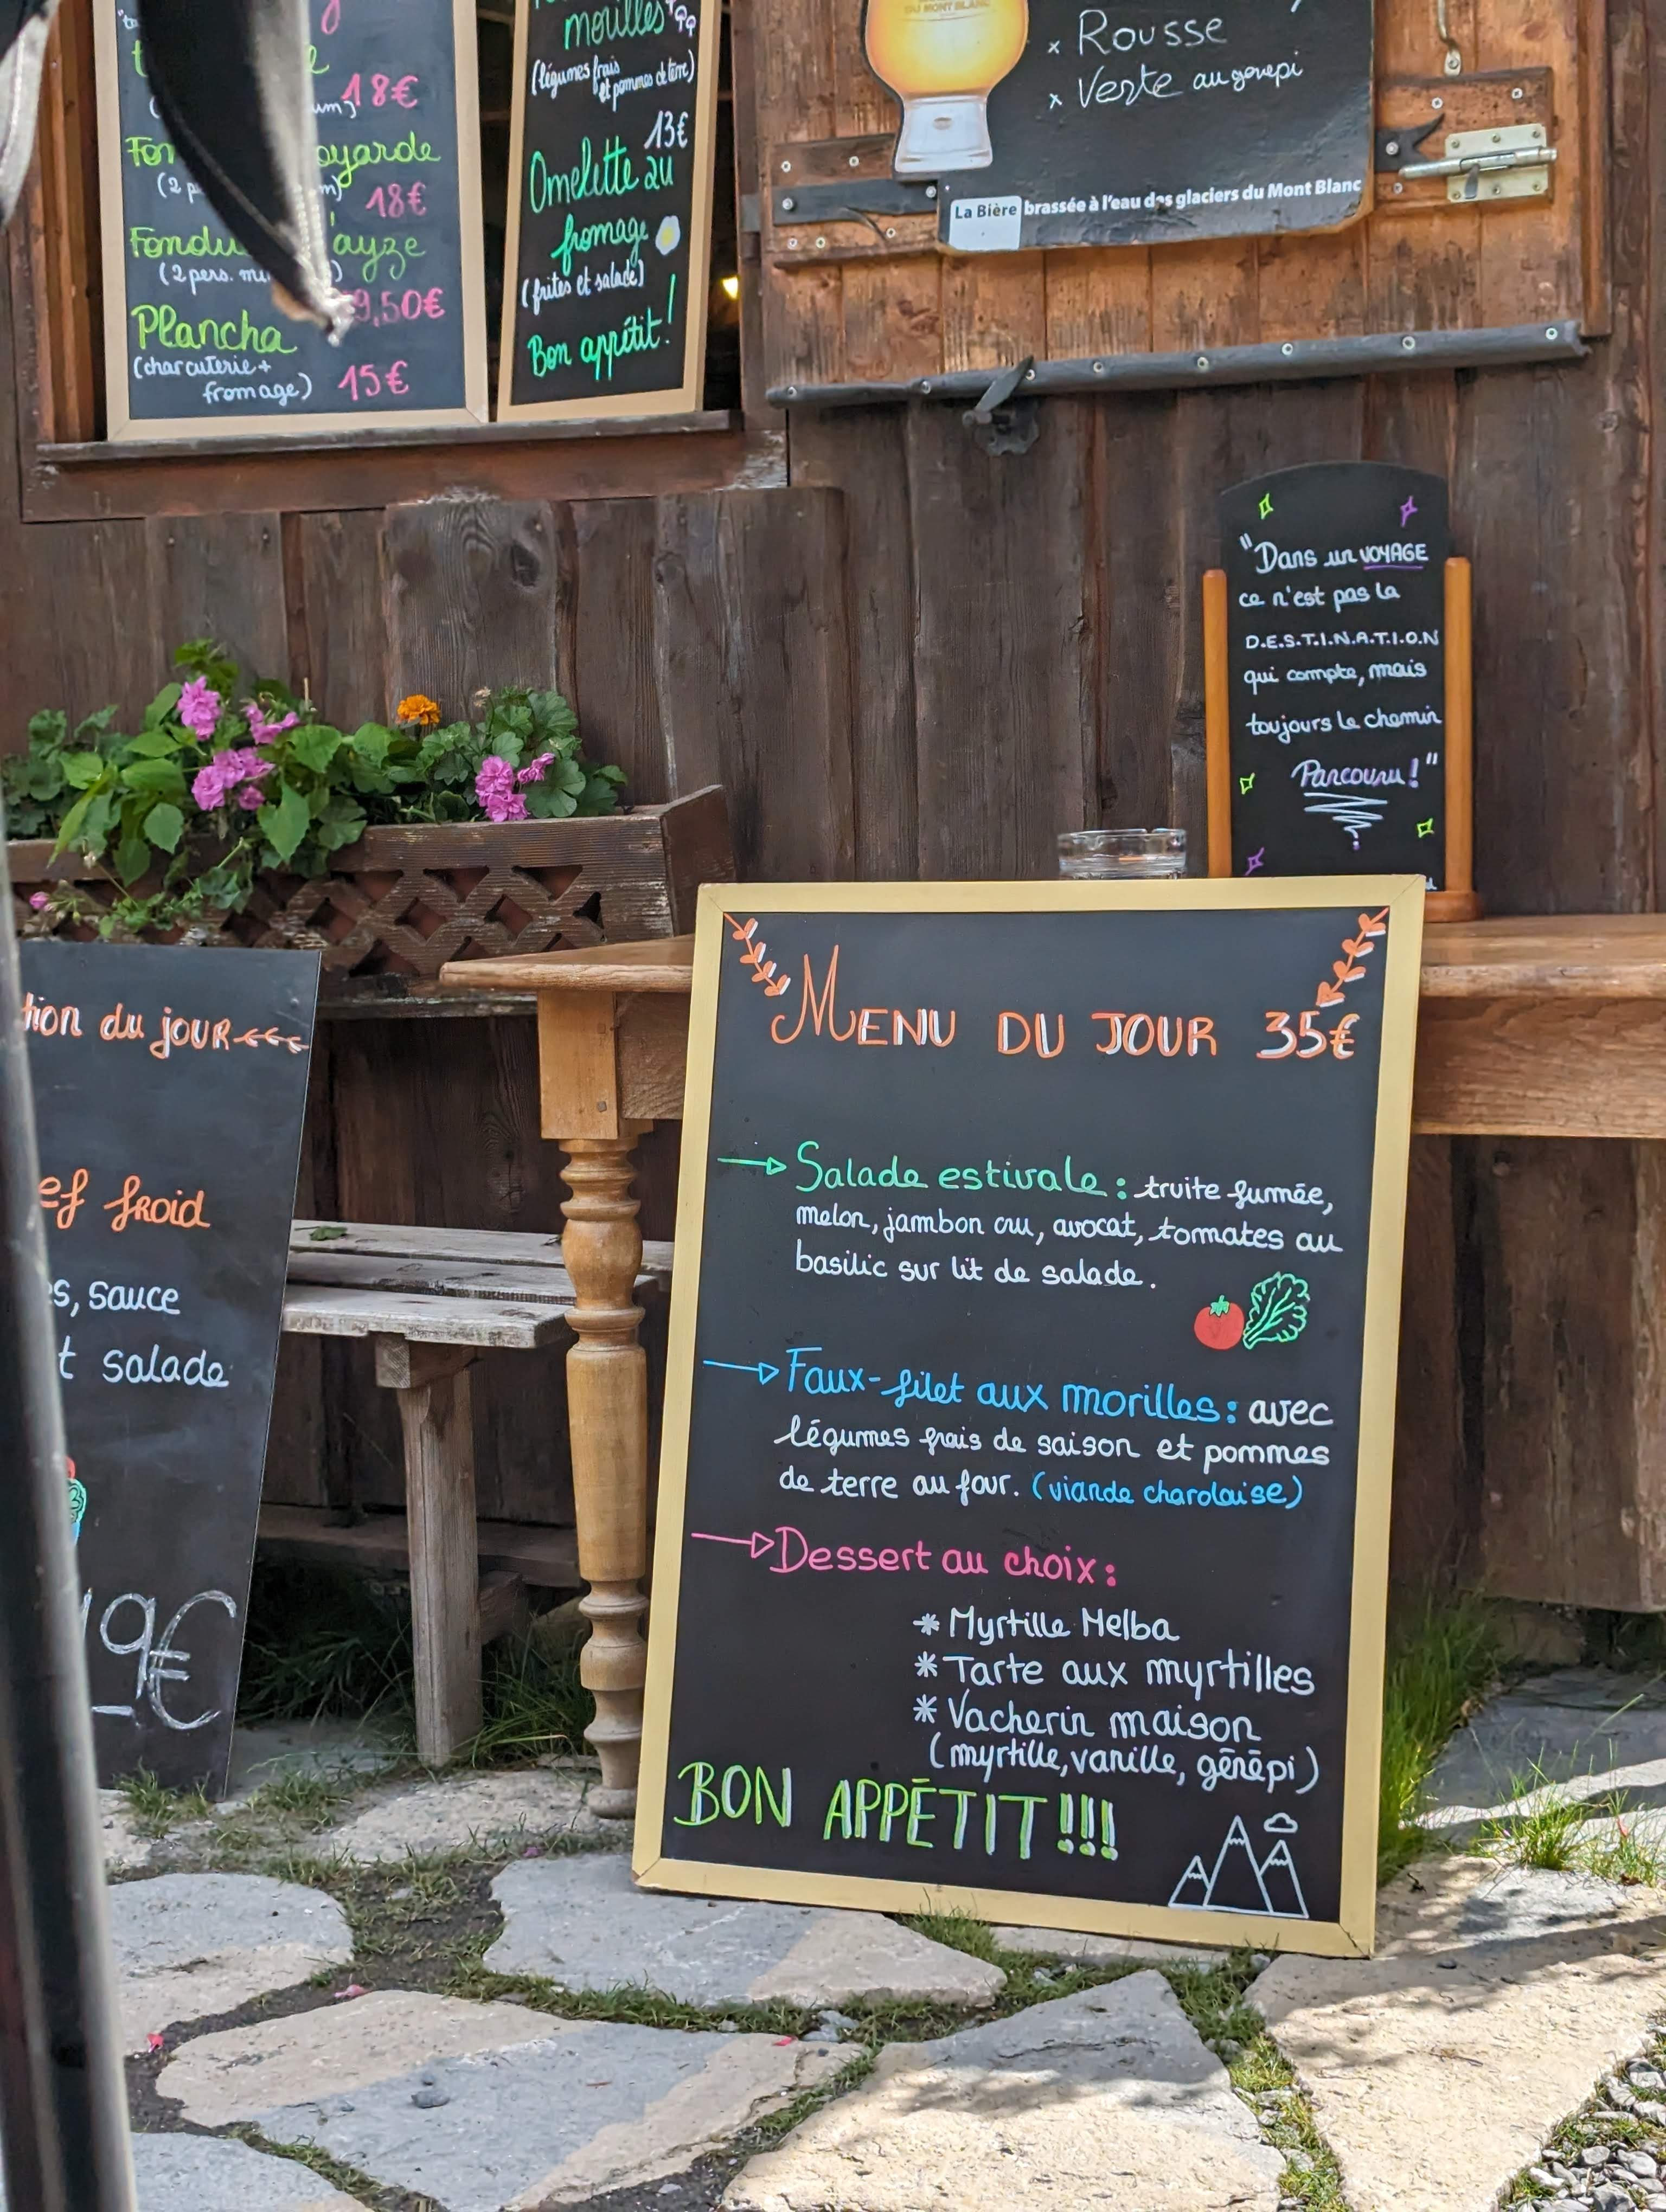 18€
oyarde
(2 p
18€
Fondu
ayze
(2 pers.
9,50€
Plancha
(charcuterie +
fromage) 15€
morilles
(légumes frais
et pommes de terre)
13€
Omelette au
fromage
(frites et salade)
Bon appétit!
DU MONT BLANC
x Rousse
x Verte au genepi
La Bière brassée à l'eau des glaciers du Mont Blanc
"Dans un VOYAGE
ce n'est pas la
D.E.S.T.I.N.A.T.I.O.N
qui compte, mais
toujours le chemin
Parcouru!"
tion du JOUR
ef froid
s, sauce
t salade
19€
MENU DU JOUR 35€
Salade estivale : truite fumée,
melon, jambon cru, avocat, tomates au
basilic sur lit de salade.
Faux-filet aux morilles : avec
légumes frais de saison et pommes
de terre au four. (viande charolaise)
Dessert au choix :
* Myrtille Melba
* Tarte aux myrtilles
* Vacherin maison
(myrtille, vanille, génépi)
BON APPÉTIT!!!